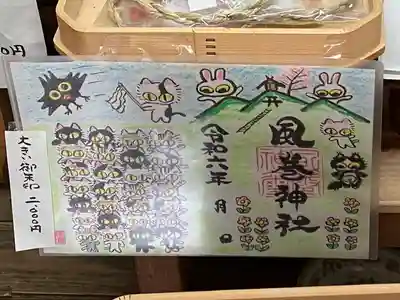 0円
大きい御朱印 二、〇〇〇円
風巻神社
令和六年 月 日